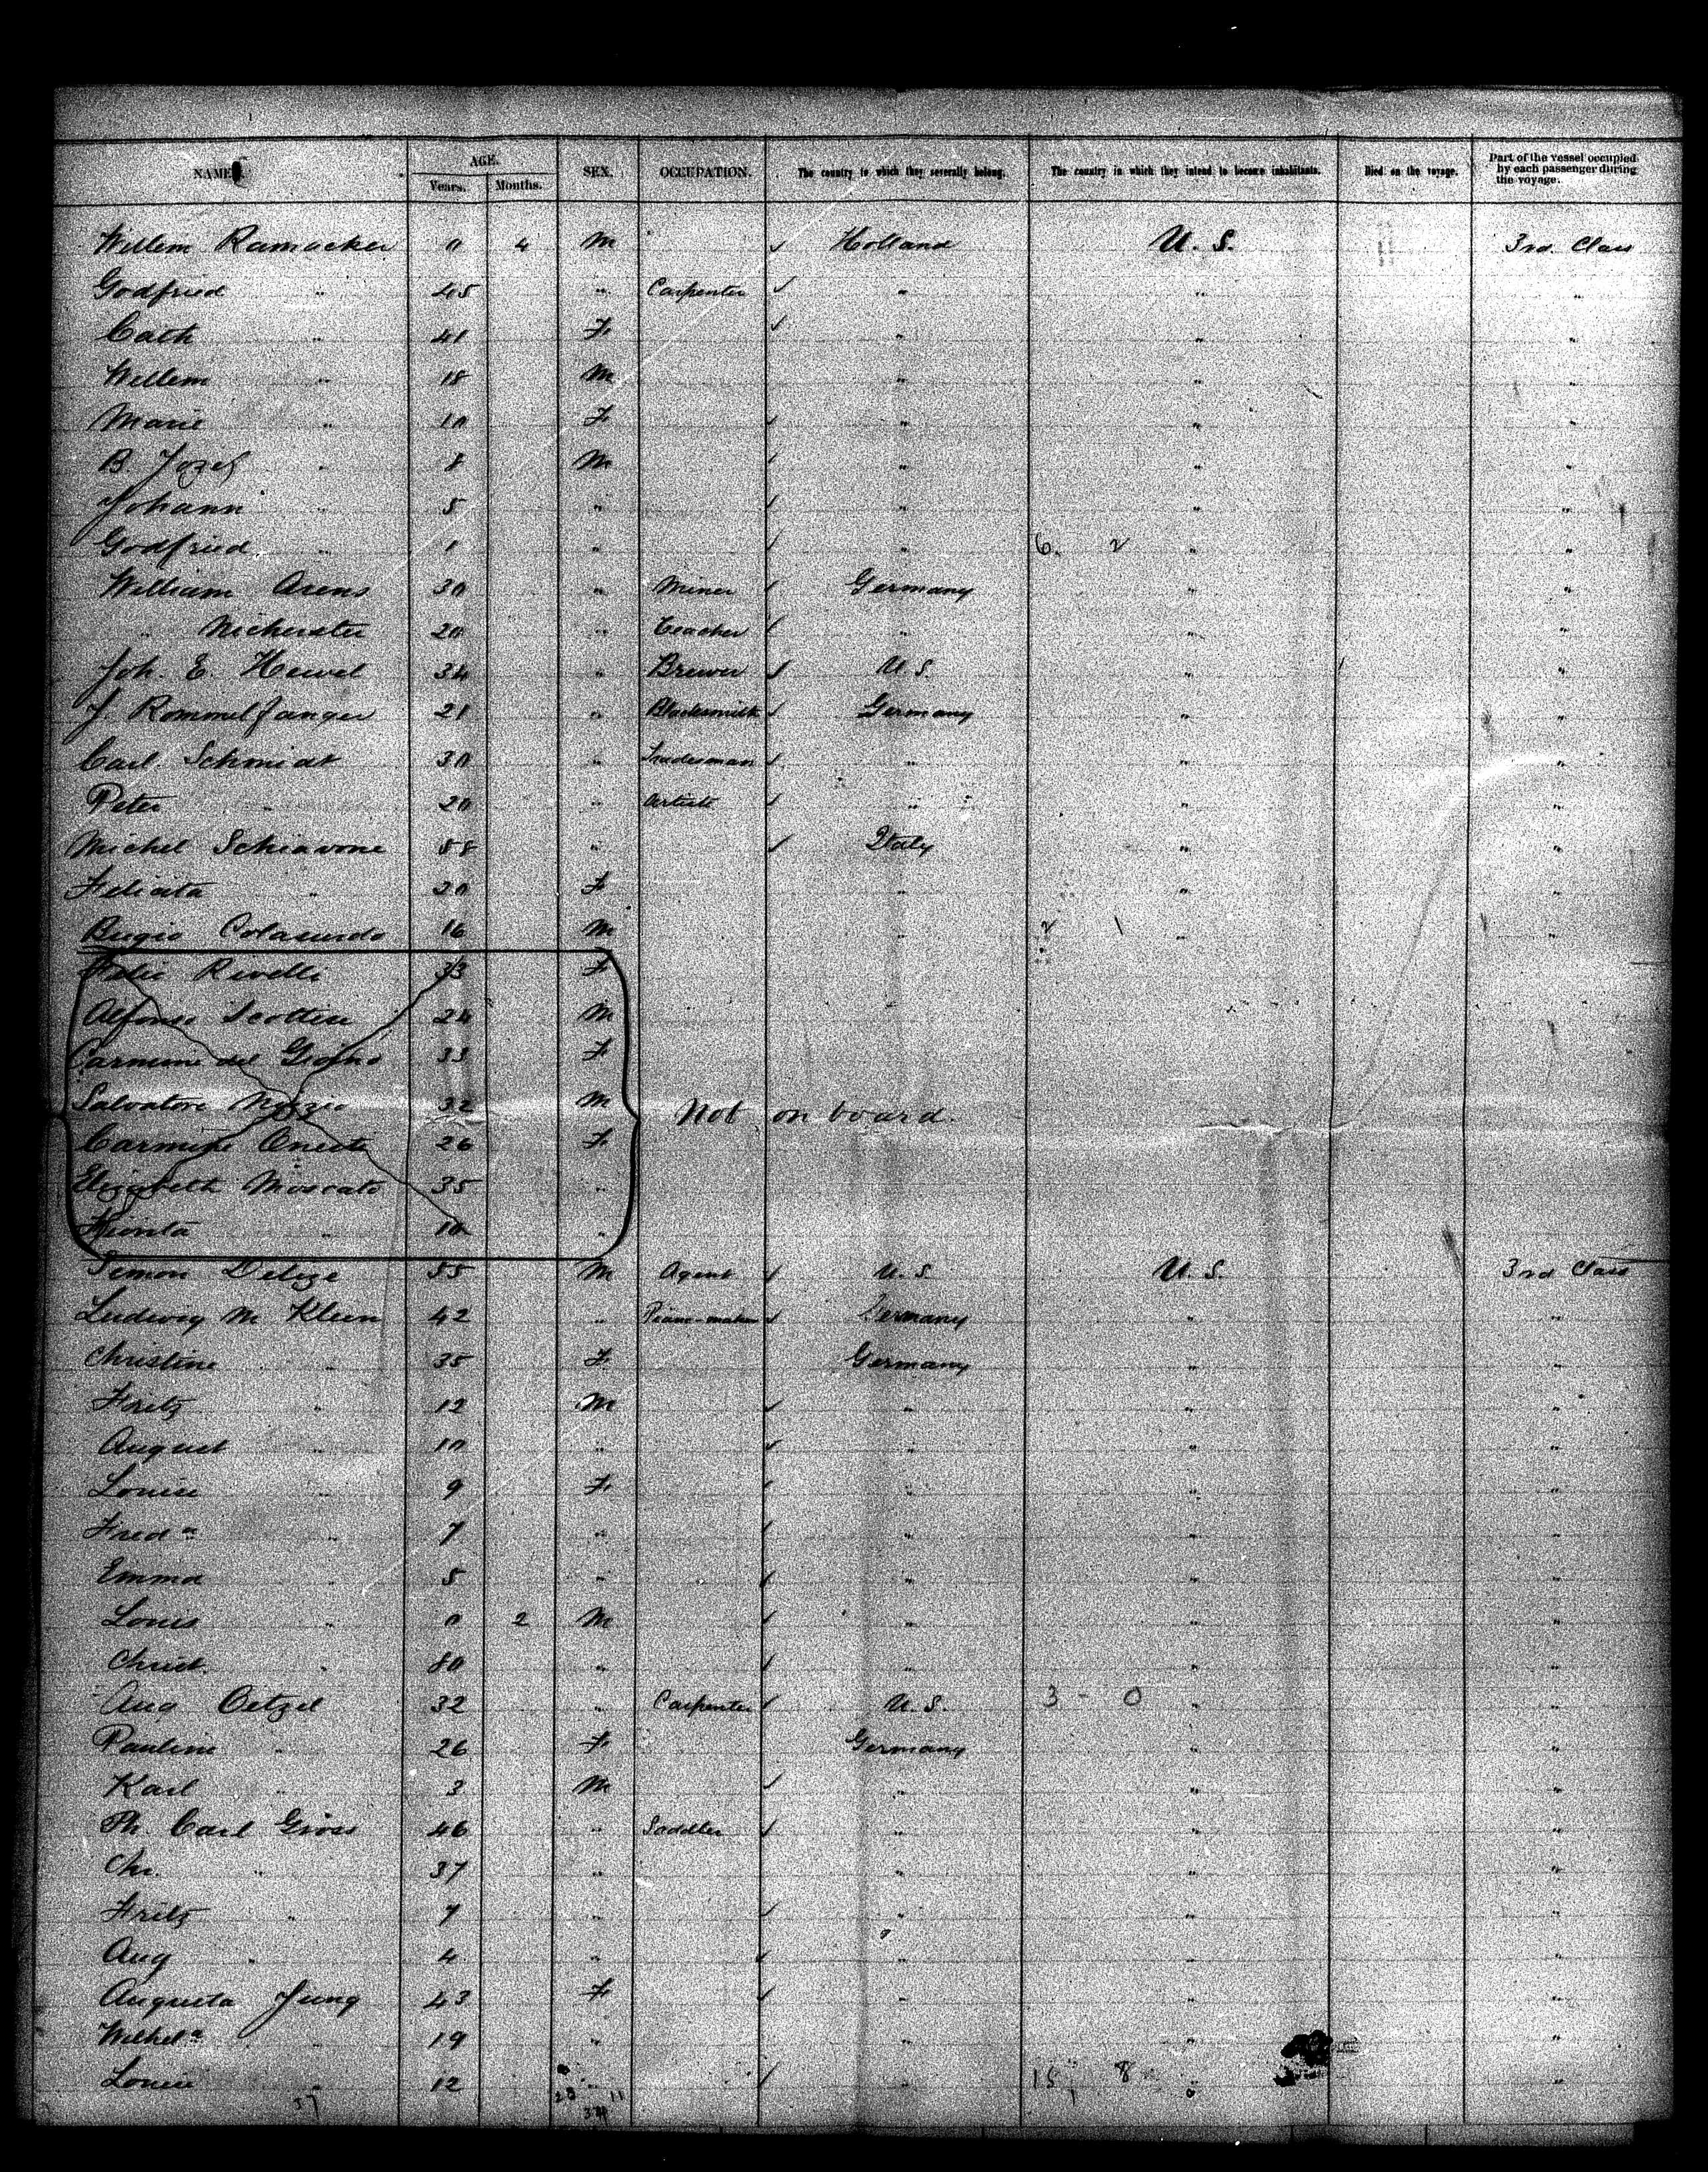 NAME. AGE. SEX. OCCUPATION. The country to which they severally belong. The country in which they intend to become inhabitants. Died on the voyage. Part of the vessel occupied by each passenger during the voyage.
Years. Months.
Willem Ramacker 0 4 M Holland U. S. 3rd. Class
Godfried " 45 " Carpenter " " "
Cath " 41 F. " " "
Willem " 18 M " " "
Marie " 10 F " " "
B. Jozef " 8 M " " "
Johann " 5 " " " "
Godfried " 1 " " 6. 2 " "
William Arens 30 " Miner Germany " "
" 20 " Teacher " " "
Joh. E. Hewel 34 " Brewer U. S. "
J. Rommelfanger 21 " Blacksmith Germany " "
Carl Schmidt 30 " Tradesman " " "
Peter " 20 " Artist " " "
Michel Schiavone 58 " Italy " "
Felicita " 20 F " " "
Colasurdo 16 M " 2 1 " "
Felic Rivelli 33 F
Alfonso 24 M
Carmine del 33 F
Salvatore 32 M Not on board.
Carmine 26 F
Elizabeth Moscato 35 "
" 10 "
Simon Deloze 55 M Agent U. S. U. S. 3rd Class
Ludwig M Klein 42 " Piano-maker Germany " "
Christine " 35 F. Germany " "
Fritz " 12 M " " "
August " 10 " " " "
Louise " 9 F " " "
Freda " 7 " " " "
Emma " 5 " " " "
Louis " 0 2 M " " "
Christ. " 80 " " " "
Aug Oetzel 32 " Carpenter U. S. 3 - 0 " "
Pauline " 26 F Germany " "
Karl " 3 M " " "
Ph. Carl Gross 46 " Saddler " " "
Chr. " 37 " " " "
Fritz " 7 " " " "
Aug " 4 " " " "
Augusta Jung 43 F " " "
Wilhela " 19 " " "
Louise " 12 " " 15 8 " "
37 28 11